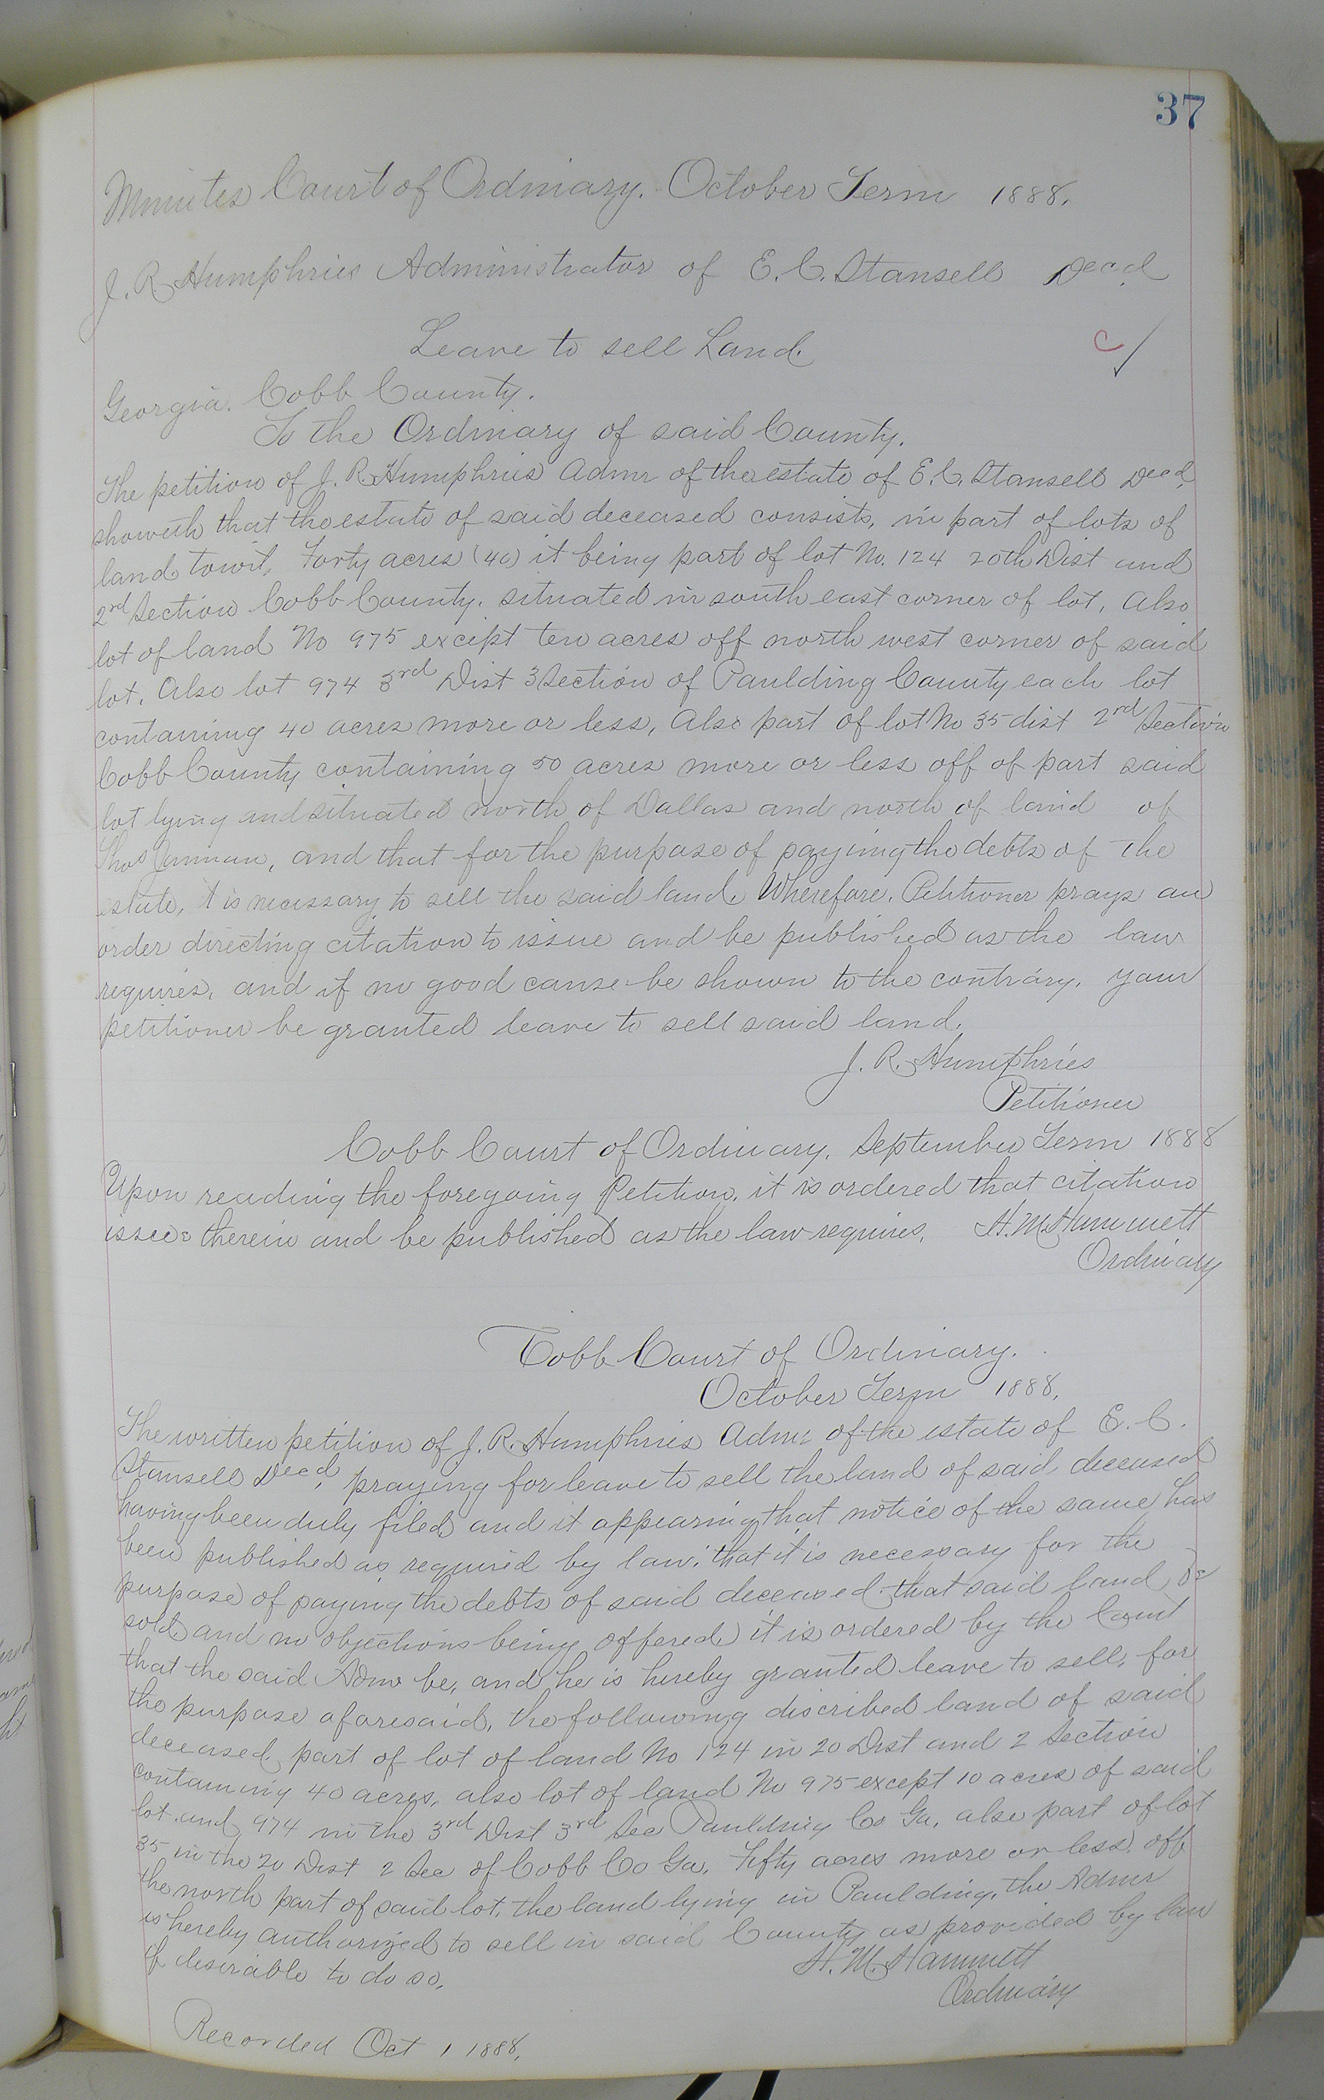 37
Minutes Court of Ordinary. October Term 1888.
J. R. Humphries Administrator of E. C. Stansell Decd.
Leave to sell Land.
C
Georgia. Cobb County.
To the Ordinary of said County.
The petition of J. R. Humphries Admr of the estate of E. C. Stansell Decd.
showeth that the estate of said deceased consists, in part of lots of
land towit, Forty acres (40) it being part of lot No. 124 20th Dist and
2nd Section Cobb County. situated in south east corner of lot. Also
lot of land No 975 except ten acres off north west corner of said
lot. Also lot 974 3rd Dist 3 Section of Paulding County each lot
containing 40 acres more or less, Also part of lot No 35 dist 2nd Section
Cobb County containing 50 acres more or less off of part said
lot lying and situated north of Dallas and north of land of
Thos and that for the purpose of paying the debts of the
estate, it is necessary to sell the said land. Wherefore. Petitioner prays an
order directing citation to issue and be published as the law
requires, and if no good cause be shown to the contrary. your
petitioner be granted leave to sell said land.
J. R. Humphries
Petitioner
Cobb Court of Ordinary. September Term 1888
Upon reading the foregoing Petition. it is ordered that citation
issue therein and be published as the law requires. H. M. Hammett
Ordinary
Cobb Court of Ordinary.
October Term 1888.
The written petition of J. R. Humphries Admr of the estate of E. C.
Stansell Decd, praying for leave to sell the land of said deceased
having been duly filed and it appearing that notice of the same has
been published as required by law. that it is necessary for the
purpose of paying the debts of said deceased that said land be
sold and no objections being offered it is ordered by the Court
that the said Admr be, and he is hereby granted leave to sell, for
the purpose aforesaid, the following discribed land of said
deceased, part of lot of land No 124 in 20 Dist and 2 Section
containing 40 acres, also lot of land No 975 except 10 acres of said
lot and 974 in the 3rd Dist 3rd Sec Paulding Co Ga, also part of lot
35 in the 20 Dist 2 Sec of Cobb Co Ga, Fifty acres more or less, off
the north part of said lot, the land lying in Paulding, the Admr
is hereby authorized to sell in said County as provided by law
if desirable to do so.
H. M. Hammett
Ordinary
Recorded Oct 1 1888.